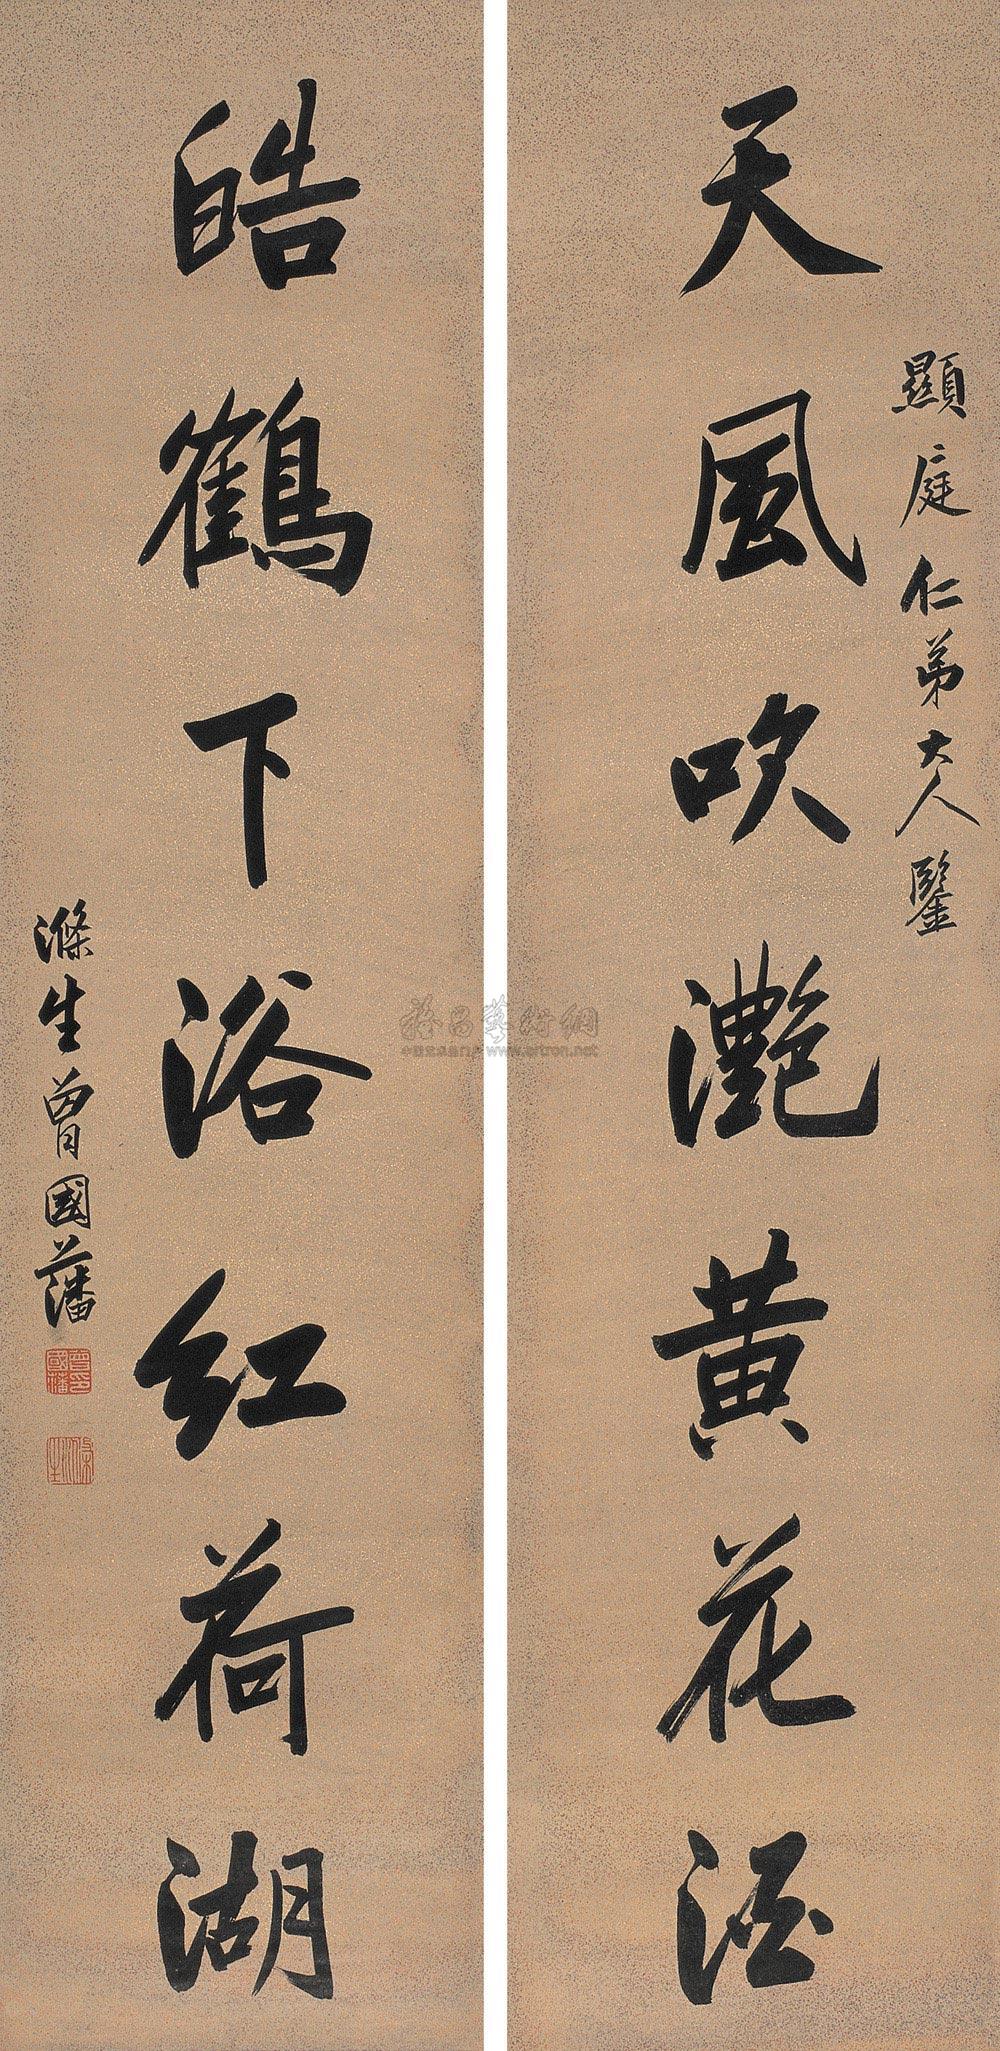 顯庭仁弟大人鑒
天風吹灔黄花酒
皓鶴下浴红荷湖
滌生曾國藩
曾國藩印
滌生
雅昌藝術網
www.artron.net